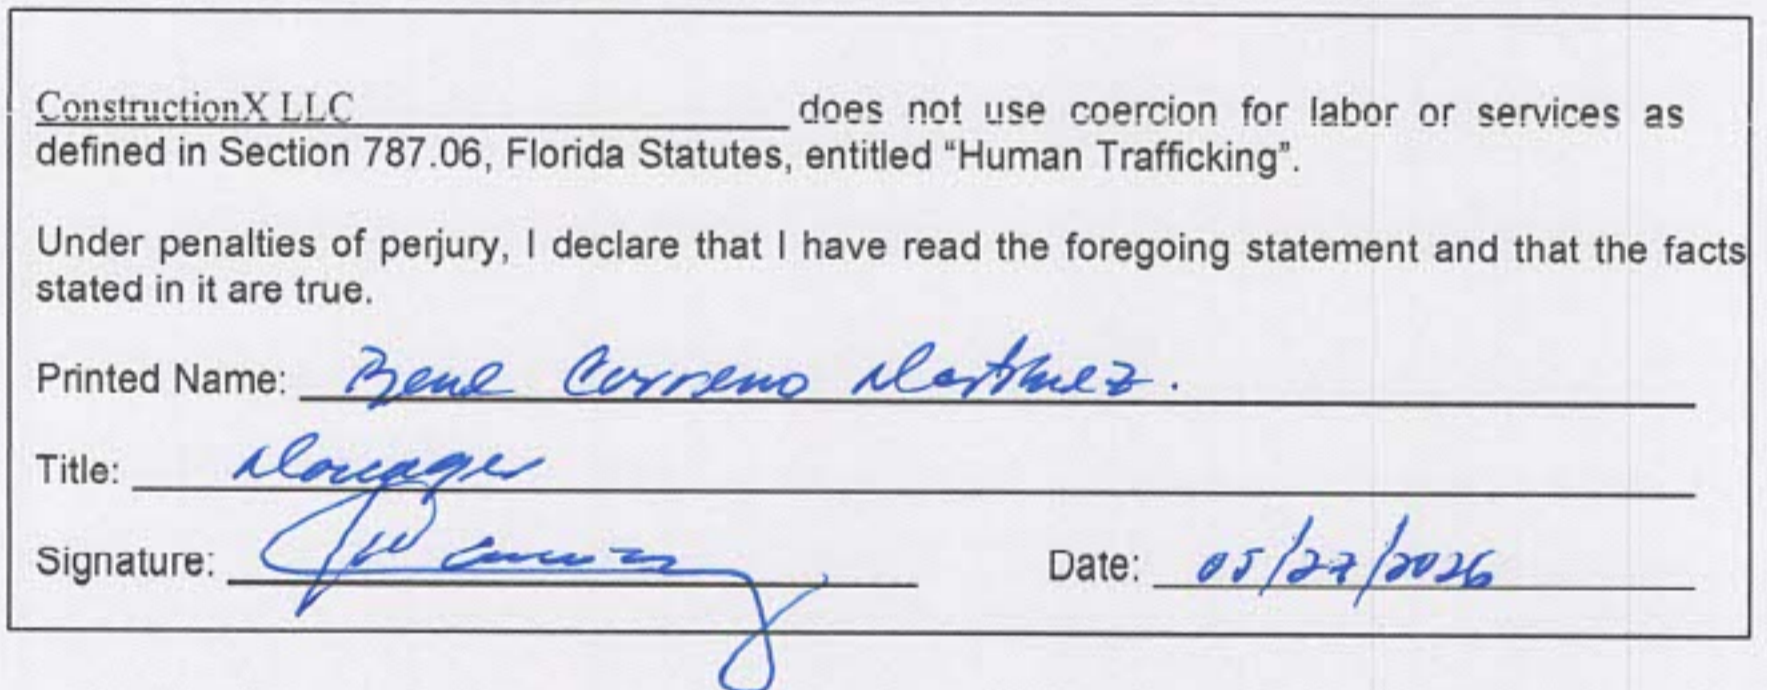 ConstructionX LLC does not use coercion for labor or services as
defined in Section 787.06, Florida Statutes, entitled “Human Trafficking”.
Under penalties of perjury, I declare that I have read the foregoing statement and that the facts
stated in it are true.
Printed Name: Rene Carreno Martinez.
Title: Manager
Signature:
Date: 05/27/2026